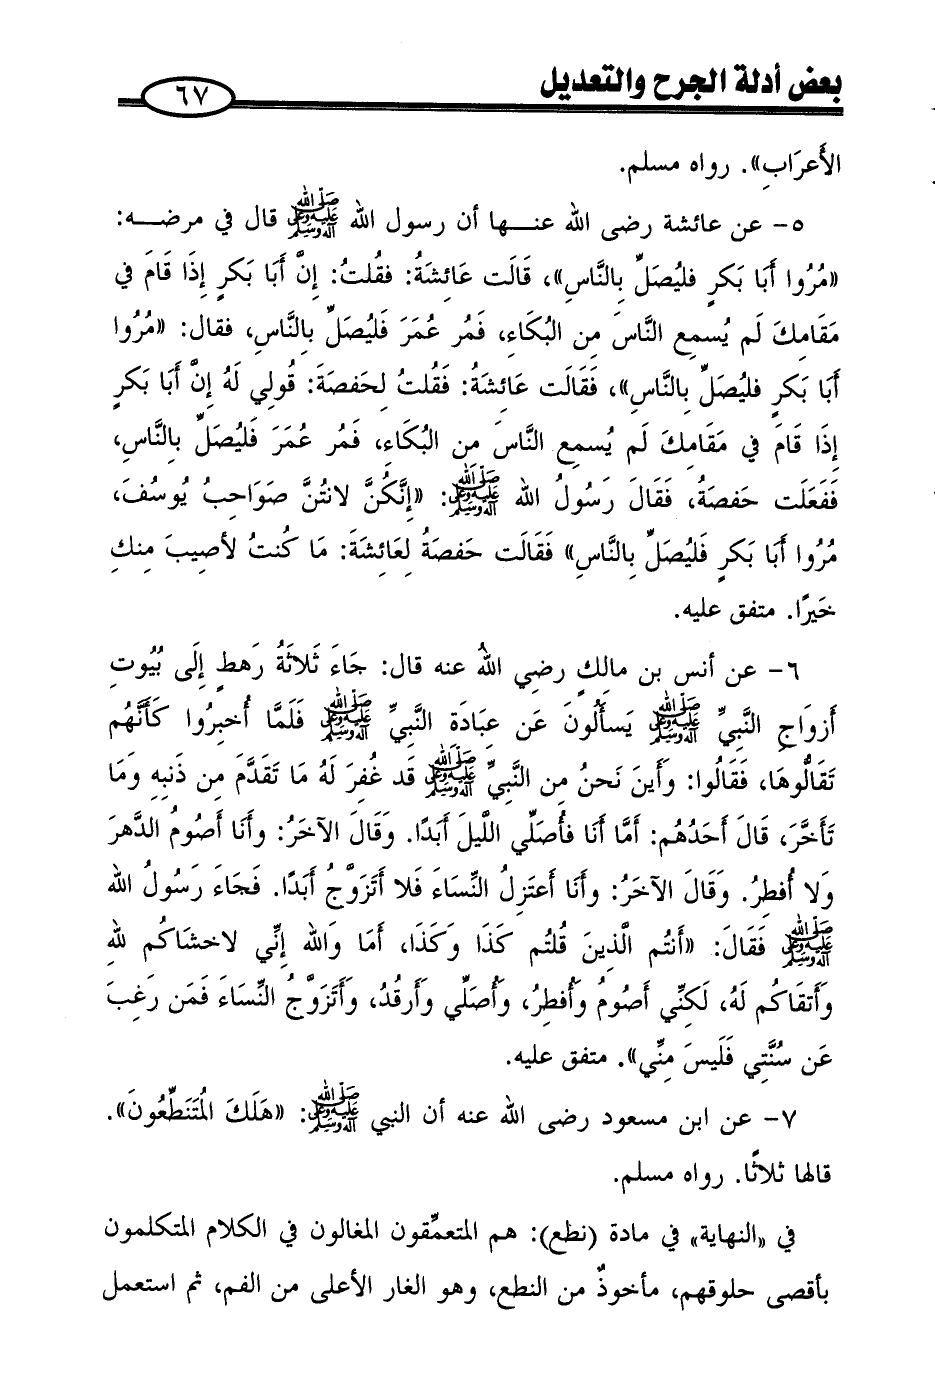 بعض أدلة الجرح والتعديل
٦٧
الأَعرَابِ». رواه مسلم.
٥- عن عائشة رضى الله عنـــها أن رسول الله ﷺ قال في مرضـــه:
«مُرُوا أَبَا بَكرٍ فليُصَلِّ بِالنَّاسِ»، قَالَت عَائِشَةُ: فقُلتُ: إِنَّ أَبَا بَكرٍ إِذَا قَامَ في
مَقَامِكَ لَم يُسمِع النَّاسَ مِن البُكَاءِ، فَمُر عُمَرَ فَليُصَلِّ بِالنَّاسِ، فقال: «مُرُوا
أَبَا بَكرٍ فليُصَلِّ بالنَّاسِ»، فَقَالَت عَائِشَةُ: فَقُلتُ لِحَفصَةَ: قُولي لَهُ إِنَّ أَبَا بَكرٍ
إِذَا قَامَ في مَقَامِكَ لَم يُسمِع النَّاسَ من البُكَاءِ، فَمُر عُمَرَ فَليُصَلِّ بالنَّاسِ،
فَفَعَلَت حَفصَةُ، فَقَالَ رَسُولُ الله ﷺ: «إِنَّكُنَّ لانتُنَّ صَوَاحِبُ يُوسُفَ،
مُرُوا أَبَا بَكرٍ فَليُصَلِّ بِالنَّاسِ» فَقَالَت حَفصَةُ لِعَائِشَةَ: مَا كُنتُ لأصِيبَ مِنكِ
خَيرًا. متفق عليه.
٦- عن أنس بن مالكٍ رضي اللهُ عنه قال: جَاءَ ثَلاثَةُ رَهطٍ إِلَى بُيُوتِ
أَزوَاجِ النَّبِيِّ ﷺ يَسأَلُونَ عَن عِبَادَة النَّبِيِّ ﷺ فَلَمَّا أُخبِرُوا كَأَنَّهُم
تَقَالُّوهَا، فَقَالُوا: وَأَينَ نَحنُ مِن النَّبِيِّ ﷺ قَد غُفِرَ لَهُ مَا تَقَدَّمَ مِن ذَنبِهِ وَمَا
تَأَخَّرَ، قَالَ أَحَدُهُم: أَمَّا أَنَا فأُصَلِّي اللَّيلَ أَبَدًا. وَقَالَ الآخَرُ: وأَنَا أَصُومُ الدَّهرَ
وَلا أُفطِرُ. وَقَالَ الآخَرُ: وأَنَا أَعتَزِلُ النِّسَاءَ فَلا أَتَزَوَّجُ أَبَدًا. فَجَاءَ رَسُولُ الله
ﷺ فَقَالَ: «أَنتُم الَّذِينَ قُلتُم كَذَا وَكَذَا، أَمَا وَالله إِنِّي لاخشَاكُم لله
وَأَتقَاكُم لَهُ، لَكِنِّي أَصُومُ وَأُفطِرُ، وَأُصَلِّي وَأَرقُدُ، وَأَتَزَوَّجُ النِّسَاءَ فَمَن رَغِبَ
عَن سُنَّتِي فَلَيسَ مِنِّي». متفق عليه.
٧- عن ابن مسعود رضى الله عنه أن النبي ﷺ: «هَلَكَ المُتَنَطِّعُونَ».
قالها ثلاثًا. رواه مسلم.
في «النهاية» في مادة (نطع): هم المتعمِّقون المغالون في الكلام المتكلمون
بأقصى حلوقهم، مأخوذٌ من النطع، وهو الغار الأعلى من الفم، ثم استعمل